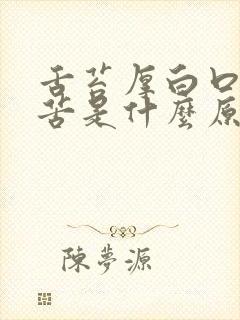 舌苔厚白口
苦是什麼原
陳夢源